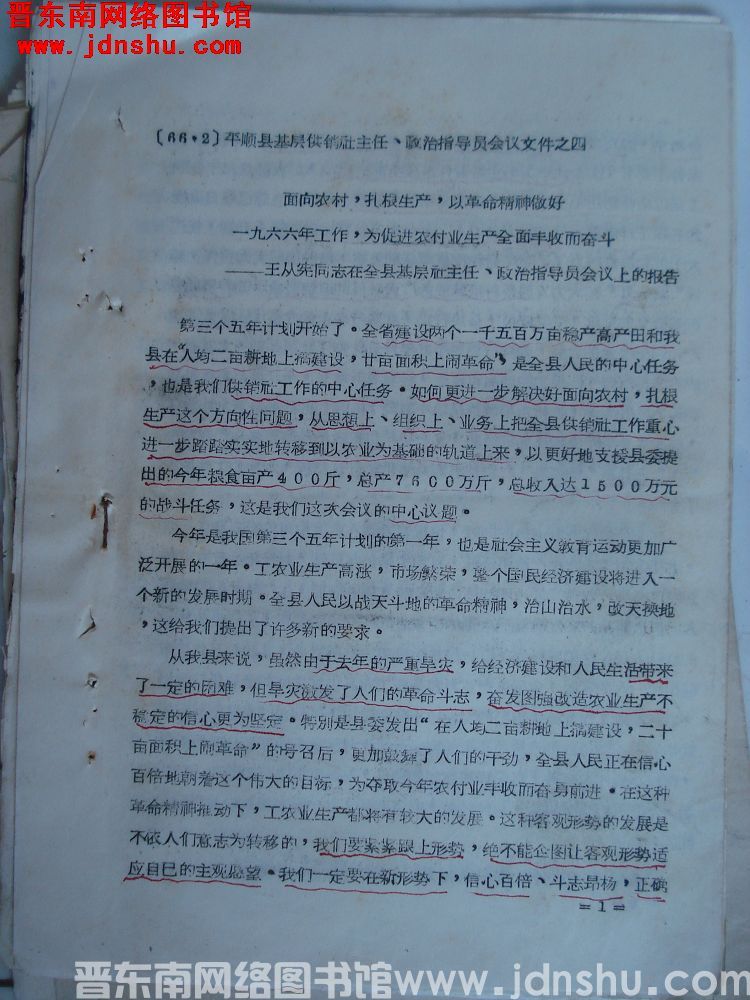 晋东南网络图书馆
www.jdnshu.com
〔66·2〕平顺县基层供销社主任、政治指导员会议文件之四
面向农村，扎根生产，以革命精神做好
一九六六年工作，为促进农付业生产全面丰收而奋斗
——王从宪同志在全县基层社主任、政治指导员会议上的报告
第三个五年计划开始了。全省建设两个一千五百万亩稳产高产田和我
县在“人均二亩耕地上搞建设，廿亩面积上闹革命”是全县人民的中心任务
，也是我们供销社工作的中心任务。如何更进一步解决好面向农村，扎根
生产这个方向性问题，从思想上、组织上、业务上把全县供销社工作重心
进一步踏踏实实地转移到以农业为基础的轨道上来，以更好地支援县委提
出的今年粮食亩产400斤，总产7600万斤，总收入达1500万元
的战斗任务，这是我们这次会议的中心议题。
今年是我国第三个五年计划的第一年，也是社会主义教育运动更加广
泛开展的一年。工农业生产高涨，市场繁荣，整个国民经济建设将进入一
个新的发展时期。全县人民以战天斗地的革命精神，治山治水，改天换地
，这给我们提出了许多新的要求。
从我县来说，虽然由于去年的严重旱灾，给经济建设和人民生活带来
了一定的困难，但旱灾激发了人们的革命斗志，奋发图强改造农业生产不
稳定的信心更为坚定。特别是县委发出“在人均二亩耕地上搞建设，二十
亩面积上闹革命”的号召后，更加鼓舞了人们的干劲，全县人民正在信心
百倍地朝着这个伟大的目标，为夺取今年农付业丰收而奋勇前进。在这种
革命精神推动下，工农业生产都将有较大的发展。这种客观形势的发展是
不依人们意志为转移的，我们要紧紧跟上形势，绝不能企图让客观形势适
应自己的主观愿望。我们一定要在新形势下，信心百倍、斗志昂杨，正确
=1=
晋东南网络图书馆www.jdnshu.com